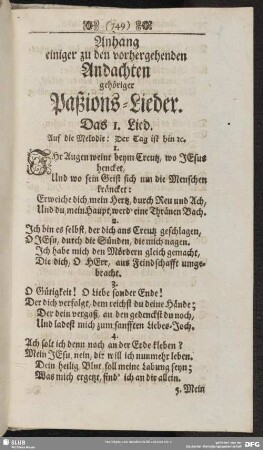 (749)
Anhang
einiger zu den vorhergehenden
Andachten
gehöriger
Paßions-Lieder.
Das 1. Lied.
Auf die Melodie: Der Tag ist hin ꝛc.
1.
Ihr Augen weint beym Creutz, wo JEsus
hencket,
Und wo sein Geist sich um die Menschen
kräncket:
Erweiche dich, mein Hertz, durch Reu und Ach,
Und du, mein Haupt, werd' eine Thränen Bach.
2.
Ich bin es selbst, der dich ans Creutz geschlagen,
O JEsu, durch die Sünden, die mich nagen.
Ich habe mich den Mördern gleich gemacht,
Die dich, O HErr, aus Feindschafft umge-
bracht.
3.
O Gütigkeit! O Liebe sonder Ende!
Der dich verfolgt, dem reichst du deine Hände;
Der dein vergaß, an den gedenckst du noch,
Und ladest mich zum sanfften Liebes-Joch.
4.
Ach solt ich denn noch an der Erde kleben?
Mein JEsu, nein, dir will ich nunmehr leben.
Dein heilig Blut soll meine Labung seyn;
Was mich ergetzt, find' ich an dir allein.
5. Mein
SLUB